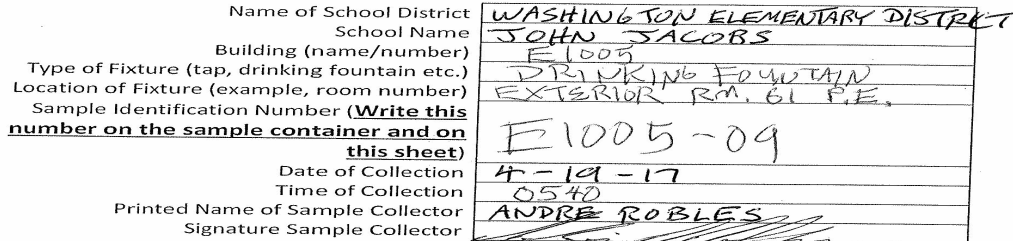 Name of School District WASHINGTON ELEMENTARY DISTRCT
School Name JOHN JACOBS
Building (name/number) E1005
Type of Fixture (tap, drinking fountain etc.) DRINKING FOUNTAIN
Location of Fixture (example, room number) EXTERIOR RM. 61 P.E.
Sample Identification Number (Write this
number on the sample container and on E1005-09
this sheet)
Date of Collection 4-19-17
Time of Collection 0540
Printed Name of Sample Collector ANDRE ROBLES
Signature Sample Collector